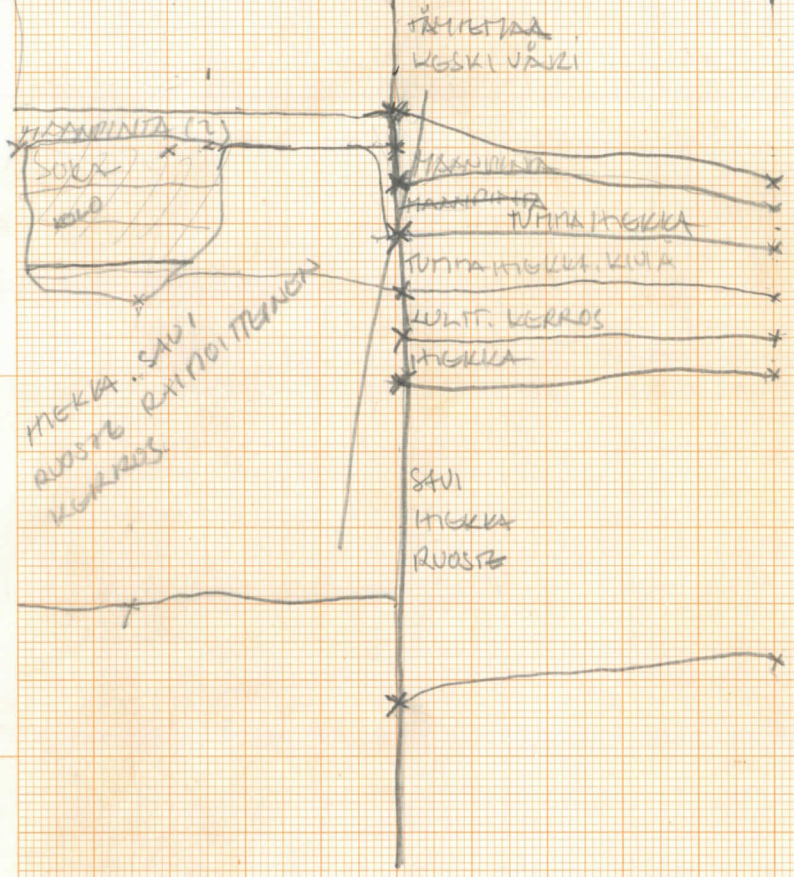 TÄYTEMAA
KESKI VÄRI
MAANPINTA (?)
SORA
KOLO
MAANPINTA
MAANPINTA
TUMMA HIEKKA
TUMMA HIEKKA. KIVIÄ
KULTT. KERROS
HIEKKA
HIEKKA. SAVI
RUOSTE RAIDOITTEINEN
KERROS.
SAVI
HIEKKA
RUOSTE